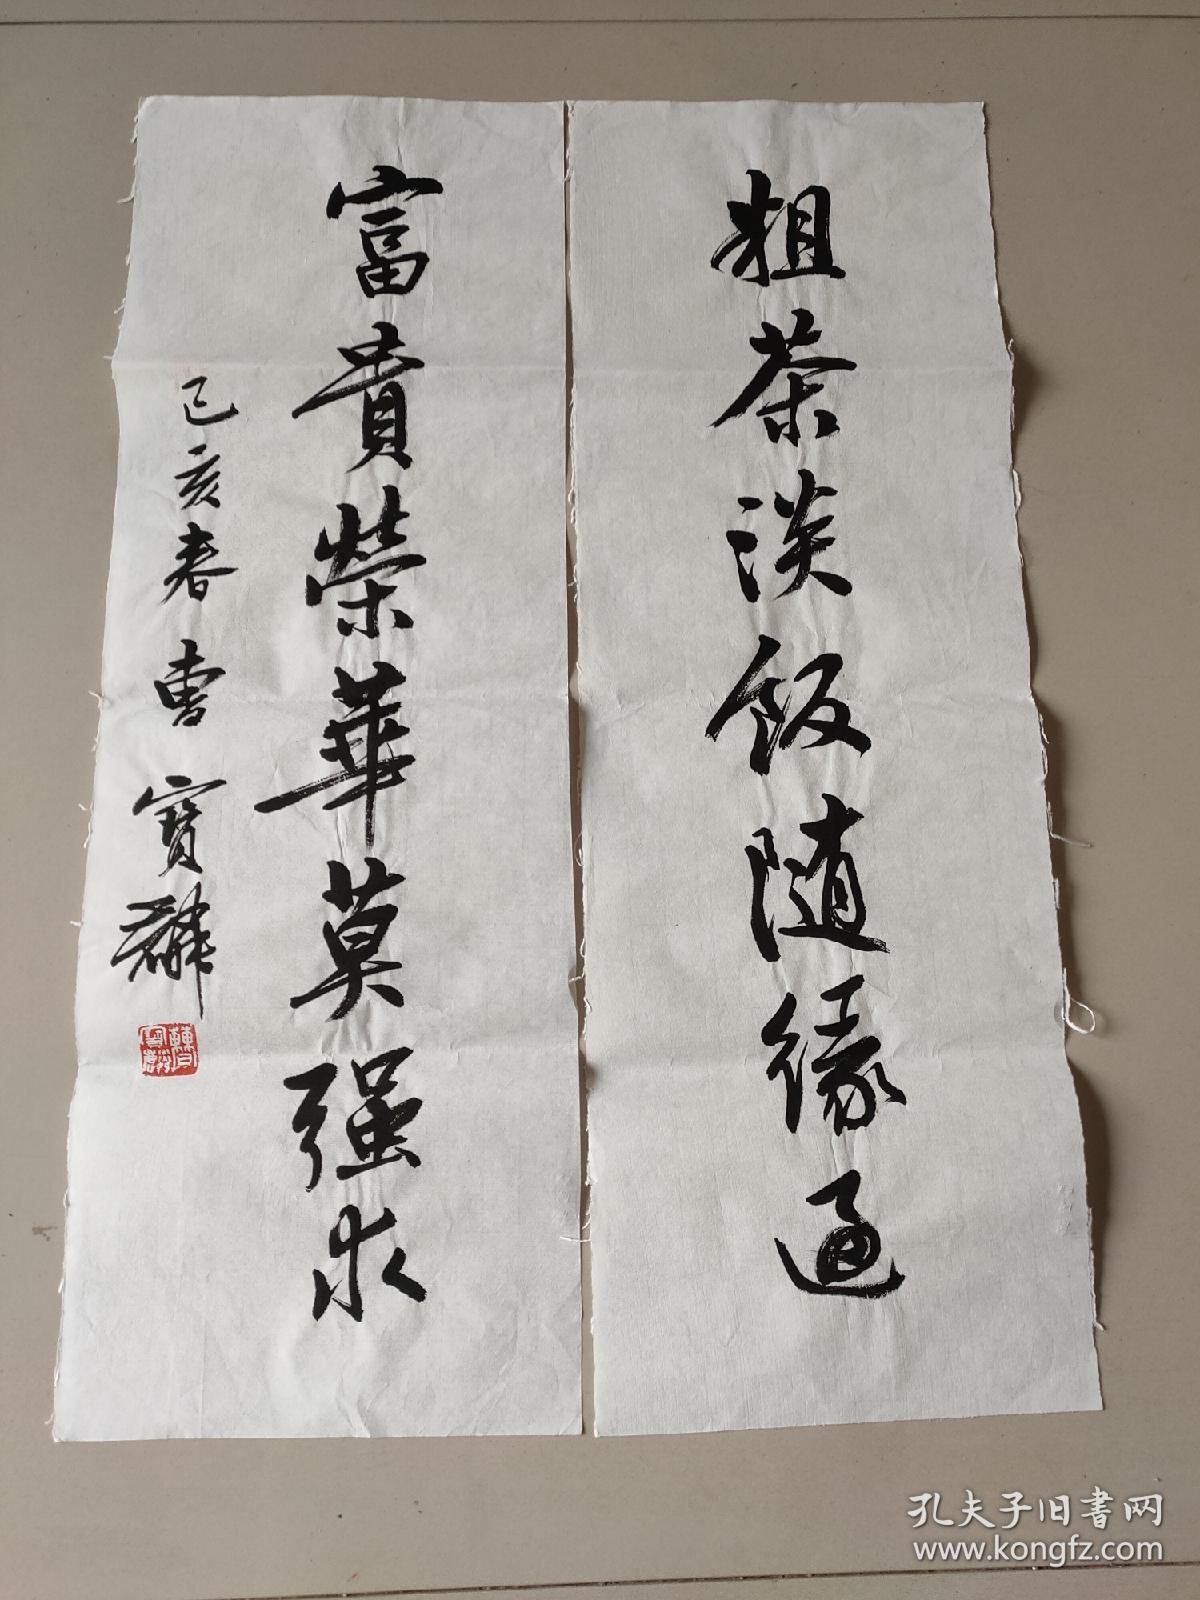 粗茶淡飯随緣過
富貴榮華莫强求
己亥春曹寶麟
孔夫子旧书网
www.kongfz.com